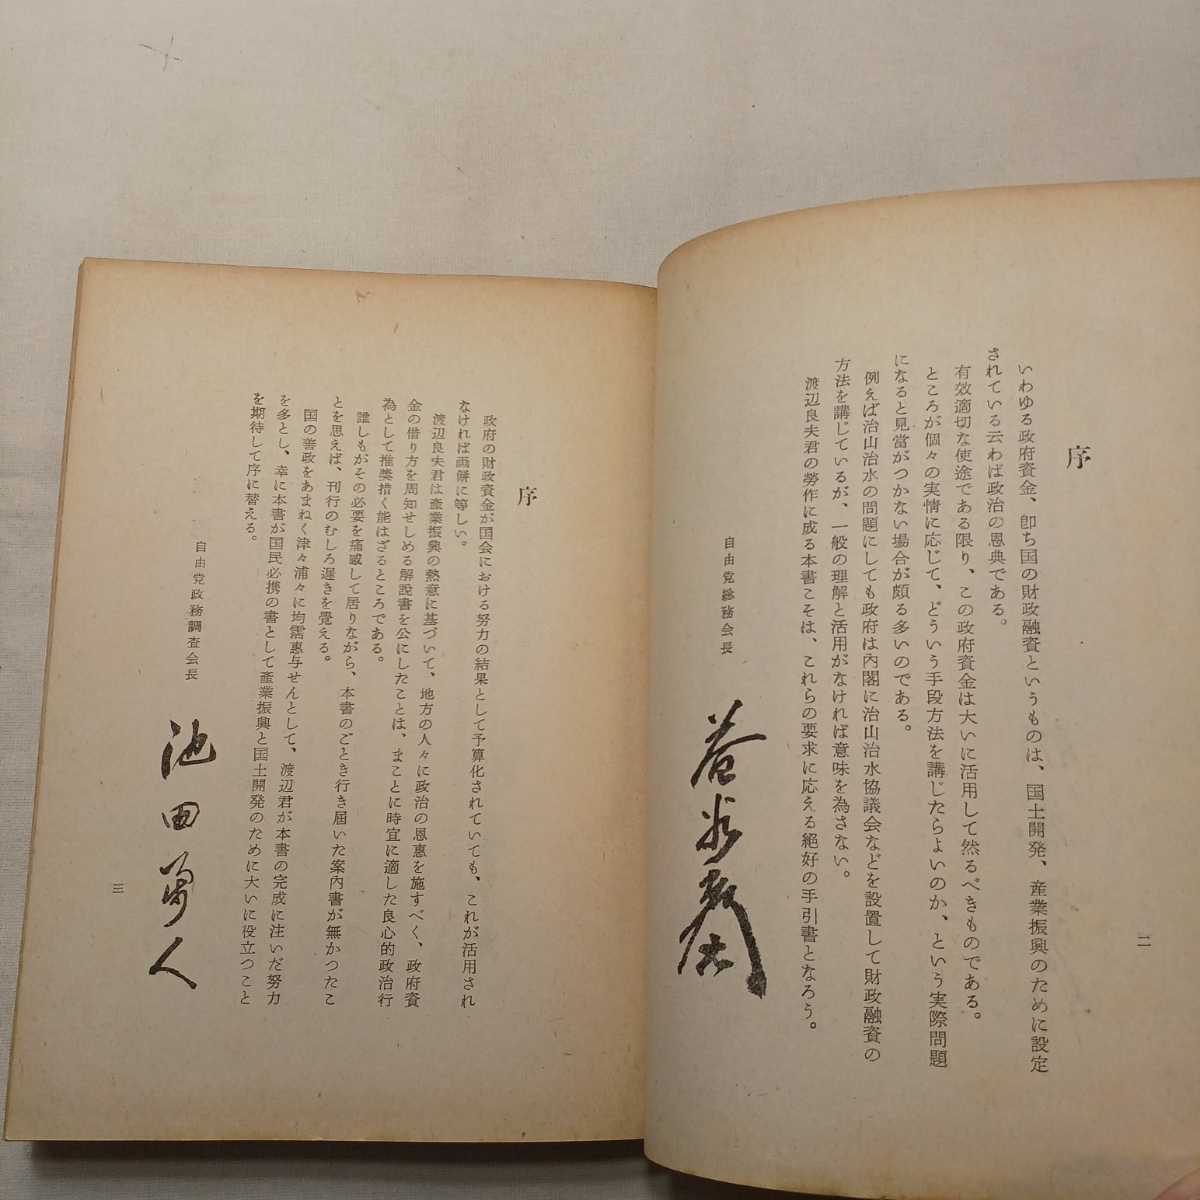 序
いわゆる政府資金、卽ち国の財政融資というものは、国土開発、産業振興のために設定
されている云わば政治の恩典である。
有效適切な使途である限り、この政府資金は大いに活用して然るべきものである。
ところが個々の実情に応じて、どういう手段方法を講じたらよいのか、という実際問題
になると見當がつかない場合が頗る多いのである。
例えば治山治水の問題にしても政府は內閣に治山治水協議会などを設置して財政融資の
方法を講じているが、一般の理解と活用がなければ意味を為さない。
渡辺良夫君の勞作に成る本書こそは、これらの要求に応える絶好の手引書となろう。
自由党総務会長
益谷秀次
二
序
政府の財政資金が国会における努力の結果として予算化されていても、これが活用され
なければ画餅に等しい。
渡辺良夫君は產業振興の熱意に基づいて、地方の人々に政治の恩恵を施すべく、政府資
金の借り方を周知せしめる解説書を公にしたことは、まことに時宜に適した良心的政治行
為として推奬措く能はざるところである。
誰しもがその必要を痛感して居りながら、本書のごとき行き屆いた案內書が無かつたこ
とを思えば、刊行のむしろ遲きを覺える。
国の善政をあまねく津々浦々に均霑惠与せんとして、渡辺君が本書の完成に注いだ努力
を多とし、幸に本書が国民必携の書として產業振興と国土開発のために大いに役立つこと
を期待して序に替える。
自由党政務調査会長
池田勇人
三